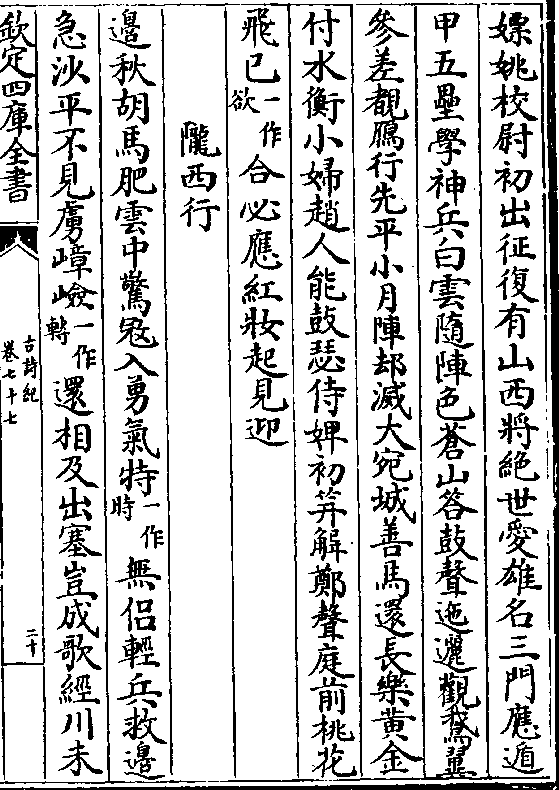 嫖姚校尉初出征復有山西將絶世愛雄名三門應遁
甲五壘學神兵白雲隨陣色蒼山答鼓聲迤邐觀鵞翼
參差覩鴈行先平小月陣却滅大宛城善馬還長樂黄金
付水衡小婦趙人能鼓瑟侍婢初笄解鄭聲庭前桃花
飛已一作欲合必應紅妝起見迎
隴西行
邊秋胡馬肥雲中驚冦入勇氣特一作時無侣輕兵救邊
急沙平不見虜嶂嶮一作轉還相及出塞豈成歌經川未
欽定四庫全書
古詩紀
卷七十七
二十